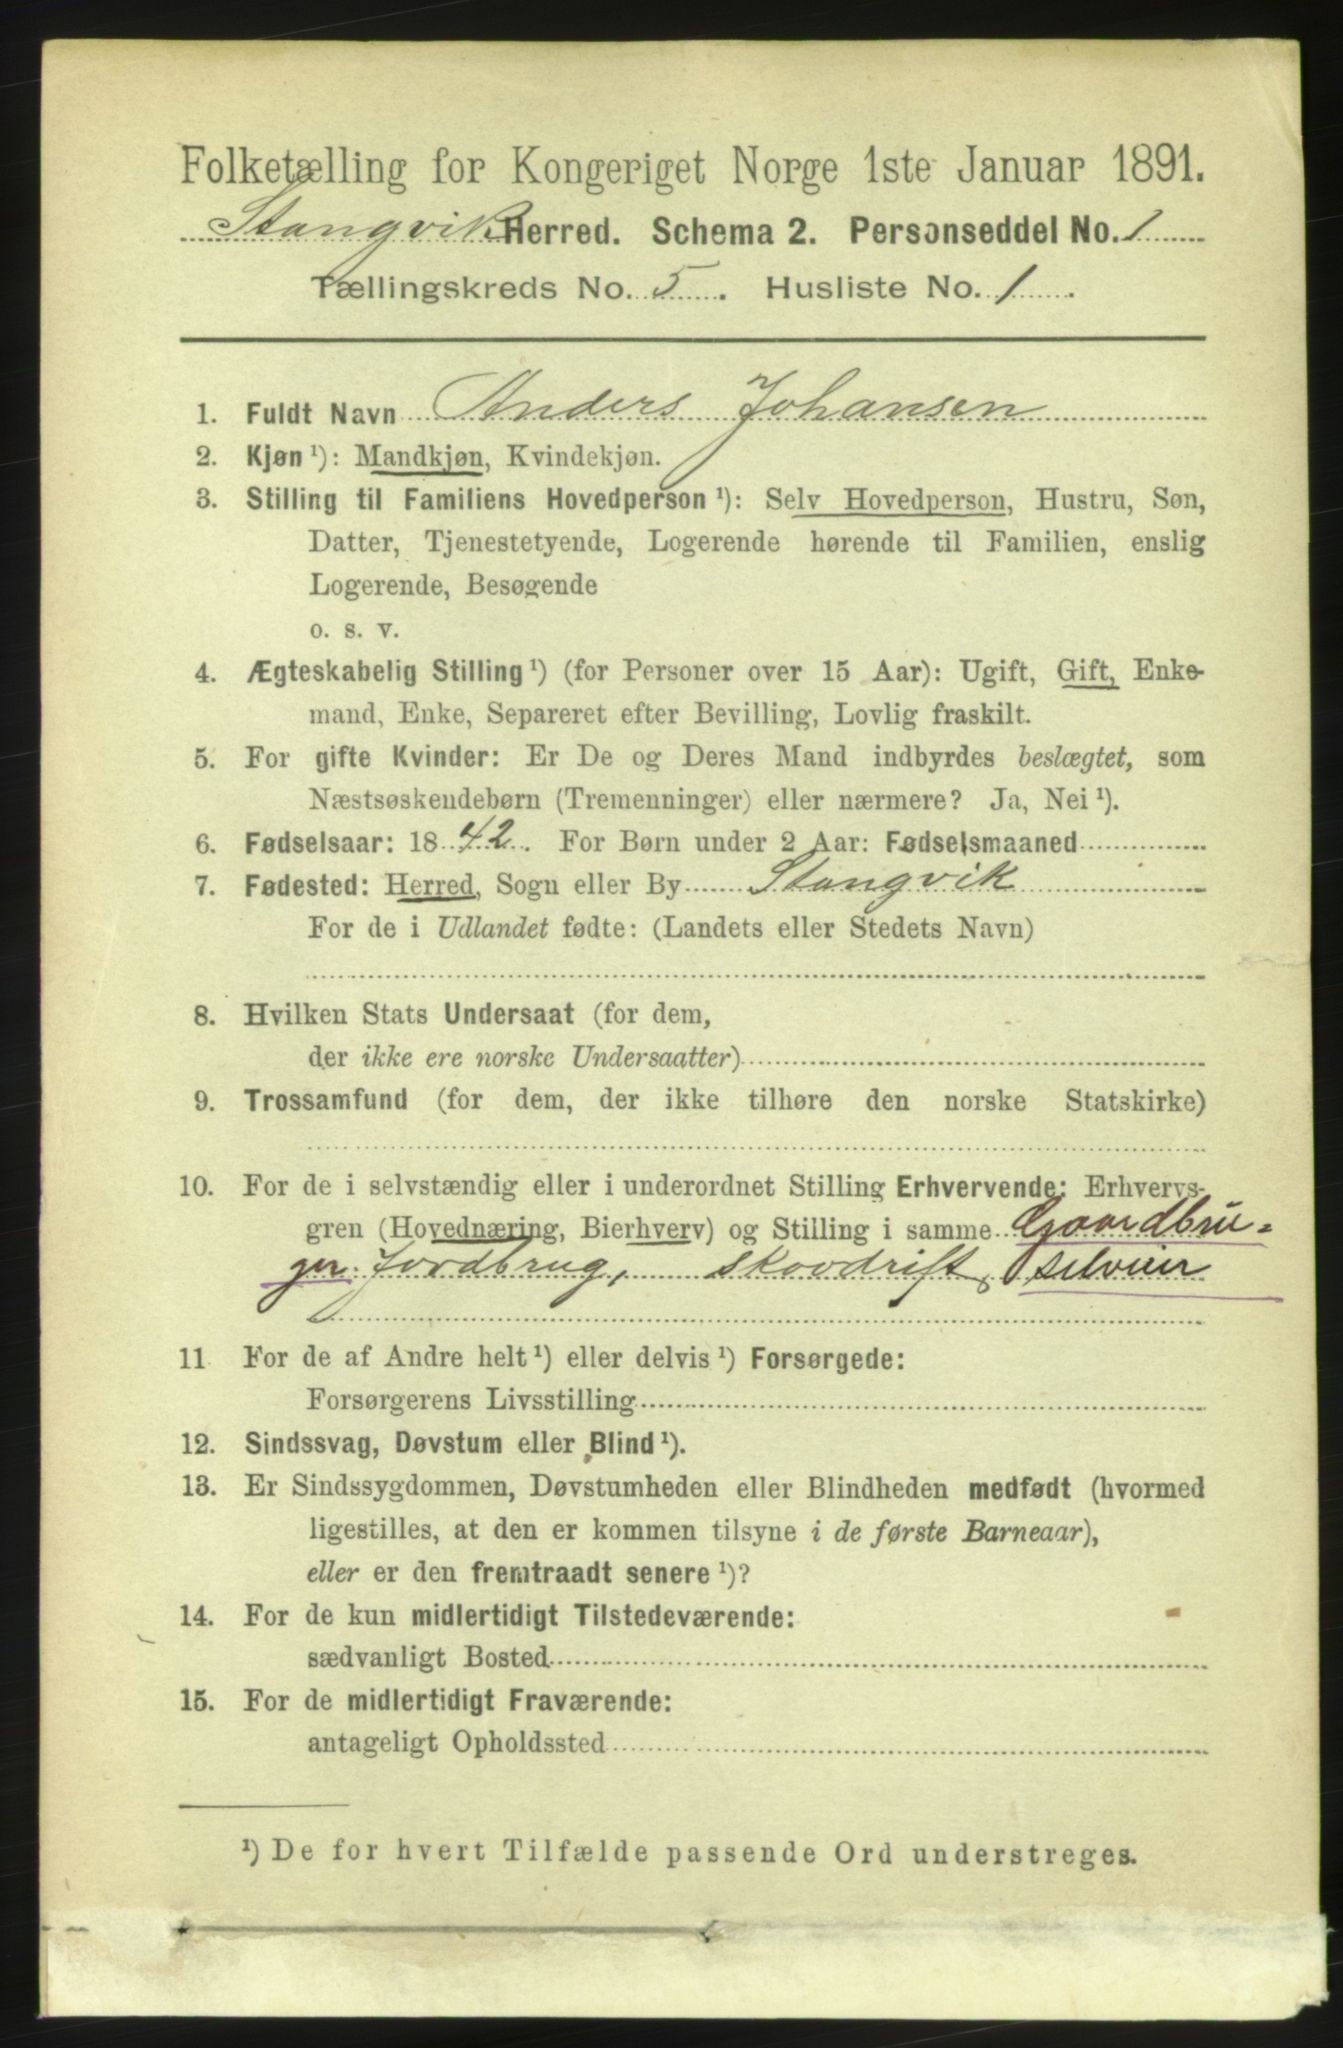 Folketælling for Kongeriget Norge 1ste Januar 1891.
Stangvik Herred. Schema 2. Personseddel No. 1
Tællingskreds No. 5. Husliste No. 1.
1. Fuldt Navn Anders Johansen
2. Kjøn ¹): Mandkjøn, Kvindekjøn.
3. Stilling til Familiens Hovedperson ¹): Selv Hovedperson, Hustru, Søn,
Datter, Tjenestetyende, Logerende hørende til Familien, enslig
Logerende, Besøgende
o. s. v.
4. Ægteskabelig Stilling ¹) (for Personer over 15 Aar): Ugift, Gift, Enke-
mand, Enke, Separeret efter Bevilling, Lovlig fraskilt.
5. For gifte Kvinder: Er De og Deres Mand indbyrdes beslægtet, som
Næstsøskendebørn (Tremenninger) eller nærmere? Ja, Nei ¹).
6. Fødselsaar: 1842. For Børn under 2 Aar: Fødselsmaaned
7. Fødested: Herred, Sogn eller By Stangvik
For de i Udlandet fødte: (Landets eller Stedets Navn)
8. Hvilken Stats Undersaat (for dem,
der ikke ere norske Undersaatter)
9. Trossamfund (for dem, der ikke tilhøre den norske Statskirke)
10. For de i selvstændig eller i underordnet Stilling Erhvervende: Erhvervs-
gren (Hovednæring, Bierhverv) og Stilling i samme Gaardbru=
ger. Jordbrug, Skovdrift, selveier
11 For de af Andre helt ¹) eller delvis ¹) Forsørgede:
Forsørgerens Livsstilling
12. Sindssvag, Døvstum eller Blind ¹).
13. Er Sindssygdommen, Døvstumheden eller Blindheden medfødt (hvormed
ligestilles, at den er kommen tilsyne i de første Barneaar),
eller er den fremtraadt senere ¹)?
14. For de kun midlertidigt Tilstedeværende:
sædvanligt Bosted
15. For de midlertidigt Fraværende:
antageligt Opholdssted
¹) De for hvert Tilfælde passende Ord understreges.